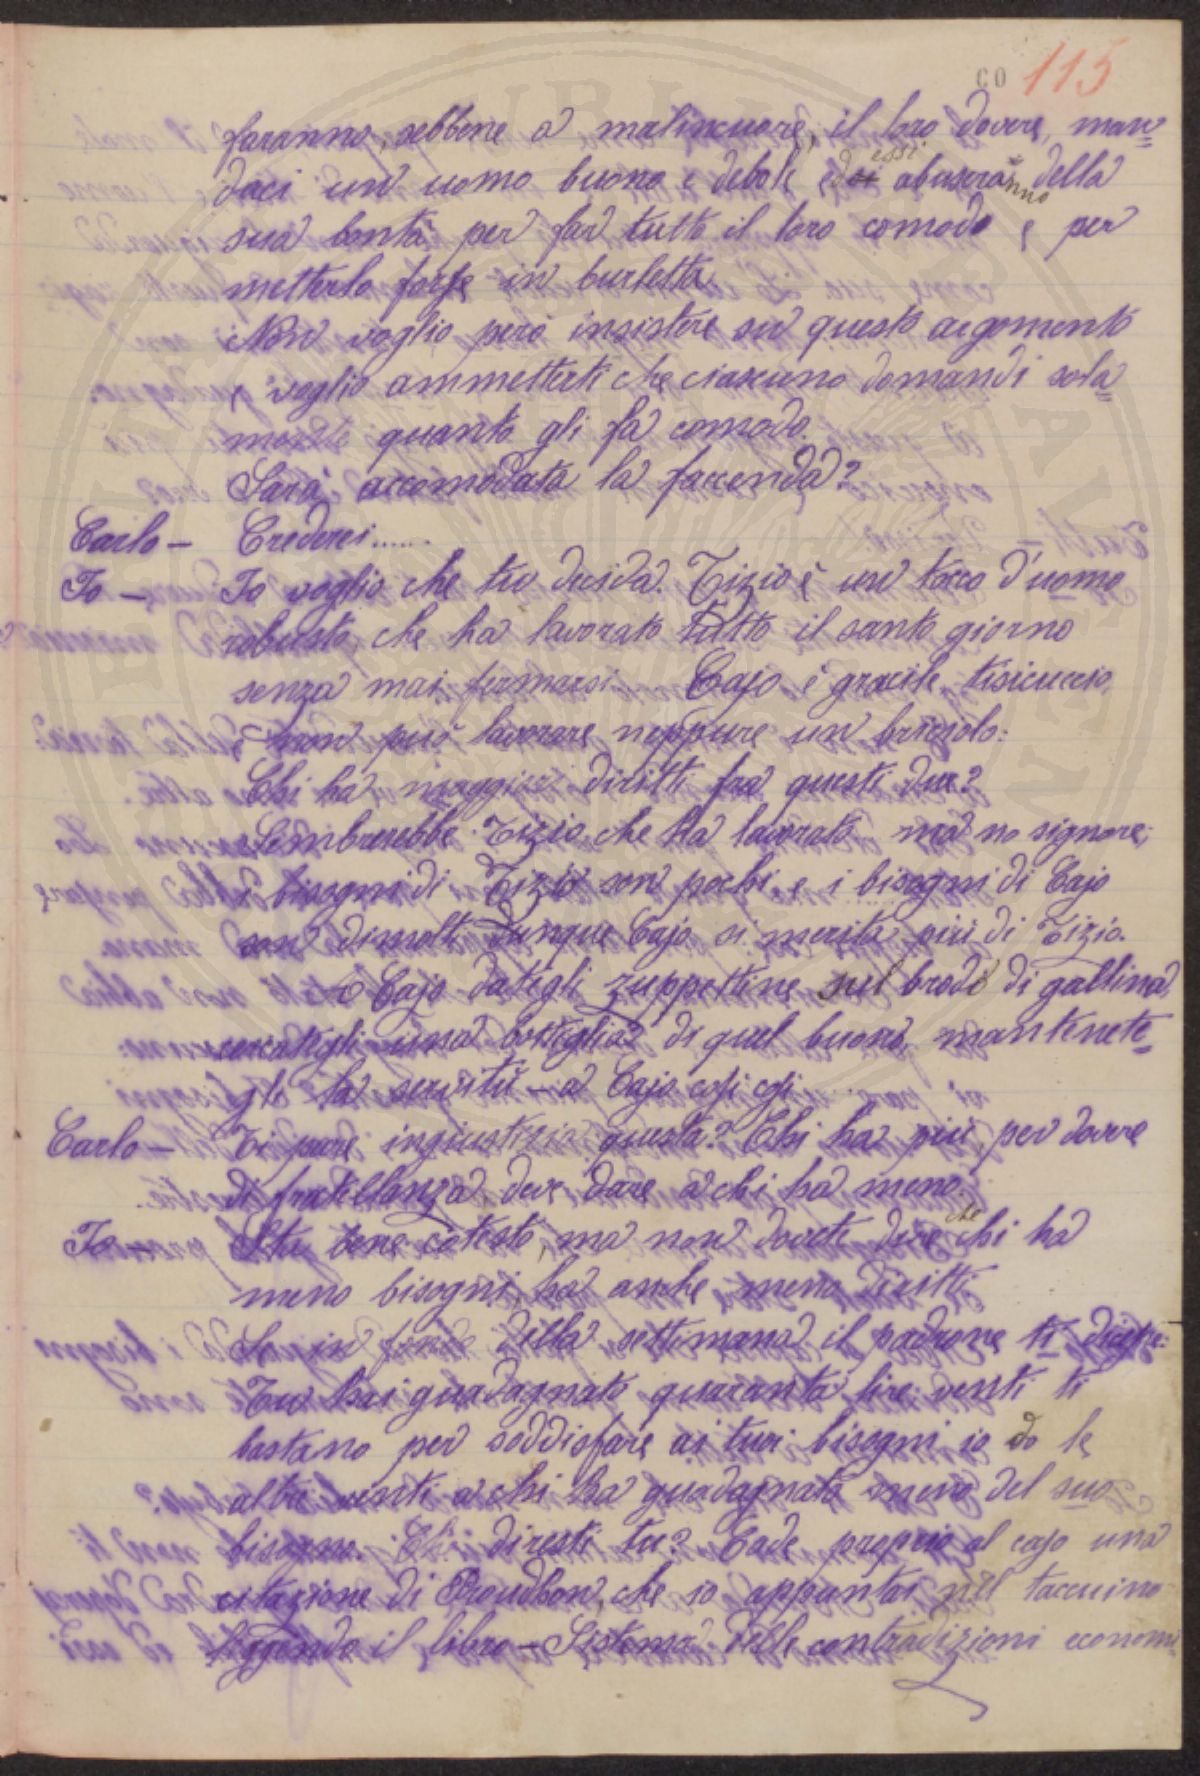 CO 115
faranno, sebbene a malincuore, il loro dovere, man=
daci un uomo buono e debole ed essi abuseranno della
sua bontà per far tutto il loro comodo e per
metterlo forse in burletta.
Non voglio però insistere su questo argomento
e voglio ammetterti che ciascuno domandi sola=
mente quanto gli fa comodo.
Sarà accomodata la faccenda?
Carlo — Crederei......
Io — Io voglio che tu decida. Tizio è un tocco d'uomo
robusto, che ha lavorato tutto il santo giorno
senza mai fermarsi. Cajo è gracile, tisicuccio,
e non può lavorare neppure un briciolo:
Chi ha maggiori diritti fra questi due?
Sembrerebbe Tizio, che ha lavorato, ma no signore;
i bisogni di Tizio son pochi e i bisogni di Cajo
son dimolti dunque Cajo si merita più di Tizio.
A Cajo dategli zuppettine nel brodo di gallina,
cercategli una bottiglia di quel buono, mantenete=
gli la servitù — a Cajo così così
Carlo — Ti pare ingiustizia questa? Chi ha più per dovere
di fratellanza deve dare a chi ha meno.
Io — Sta bene cotesto, ma non dovete dire che chi ha
meno bisogni, ha anche meno diritti.
Se in fondo della settimana il padrone ti dicesse:
Tu hai guadagnato quaranta lire: venti ti
bastano per soddisfare ai tuoi bisogni io do le
altre venti a chi ha guadagnato meno del suo
bisogno. Che diresti tu? Cade proprio al caso una
citazione di Proudhon, che io appuntai nel taccuino
leggendo il libro — Sistema delle contradizioni economi